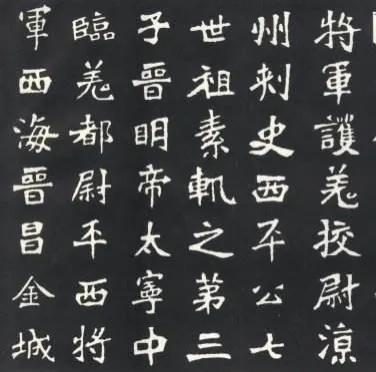 將軍護羌挍尉涼
州刾史西平公七
世祖素軌之第三
子晉明帝太寧中
臨羌都尉平西將
軍西海晉昌金城